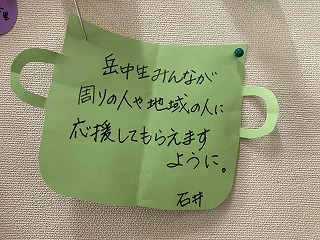 岳中生みんなが
周りの人や地域の人に
応援してもらえます
ように。
石井